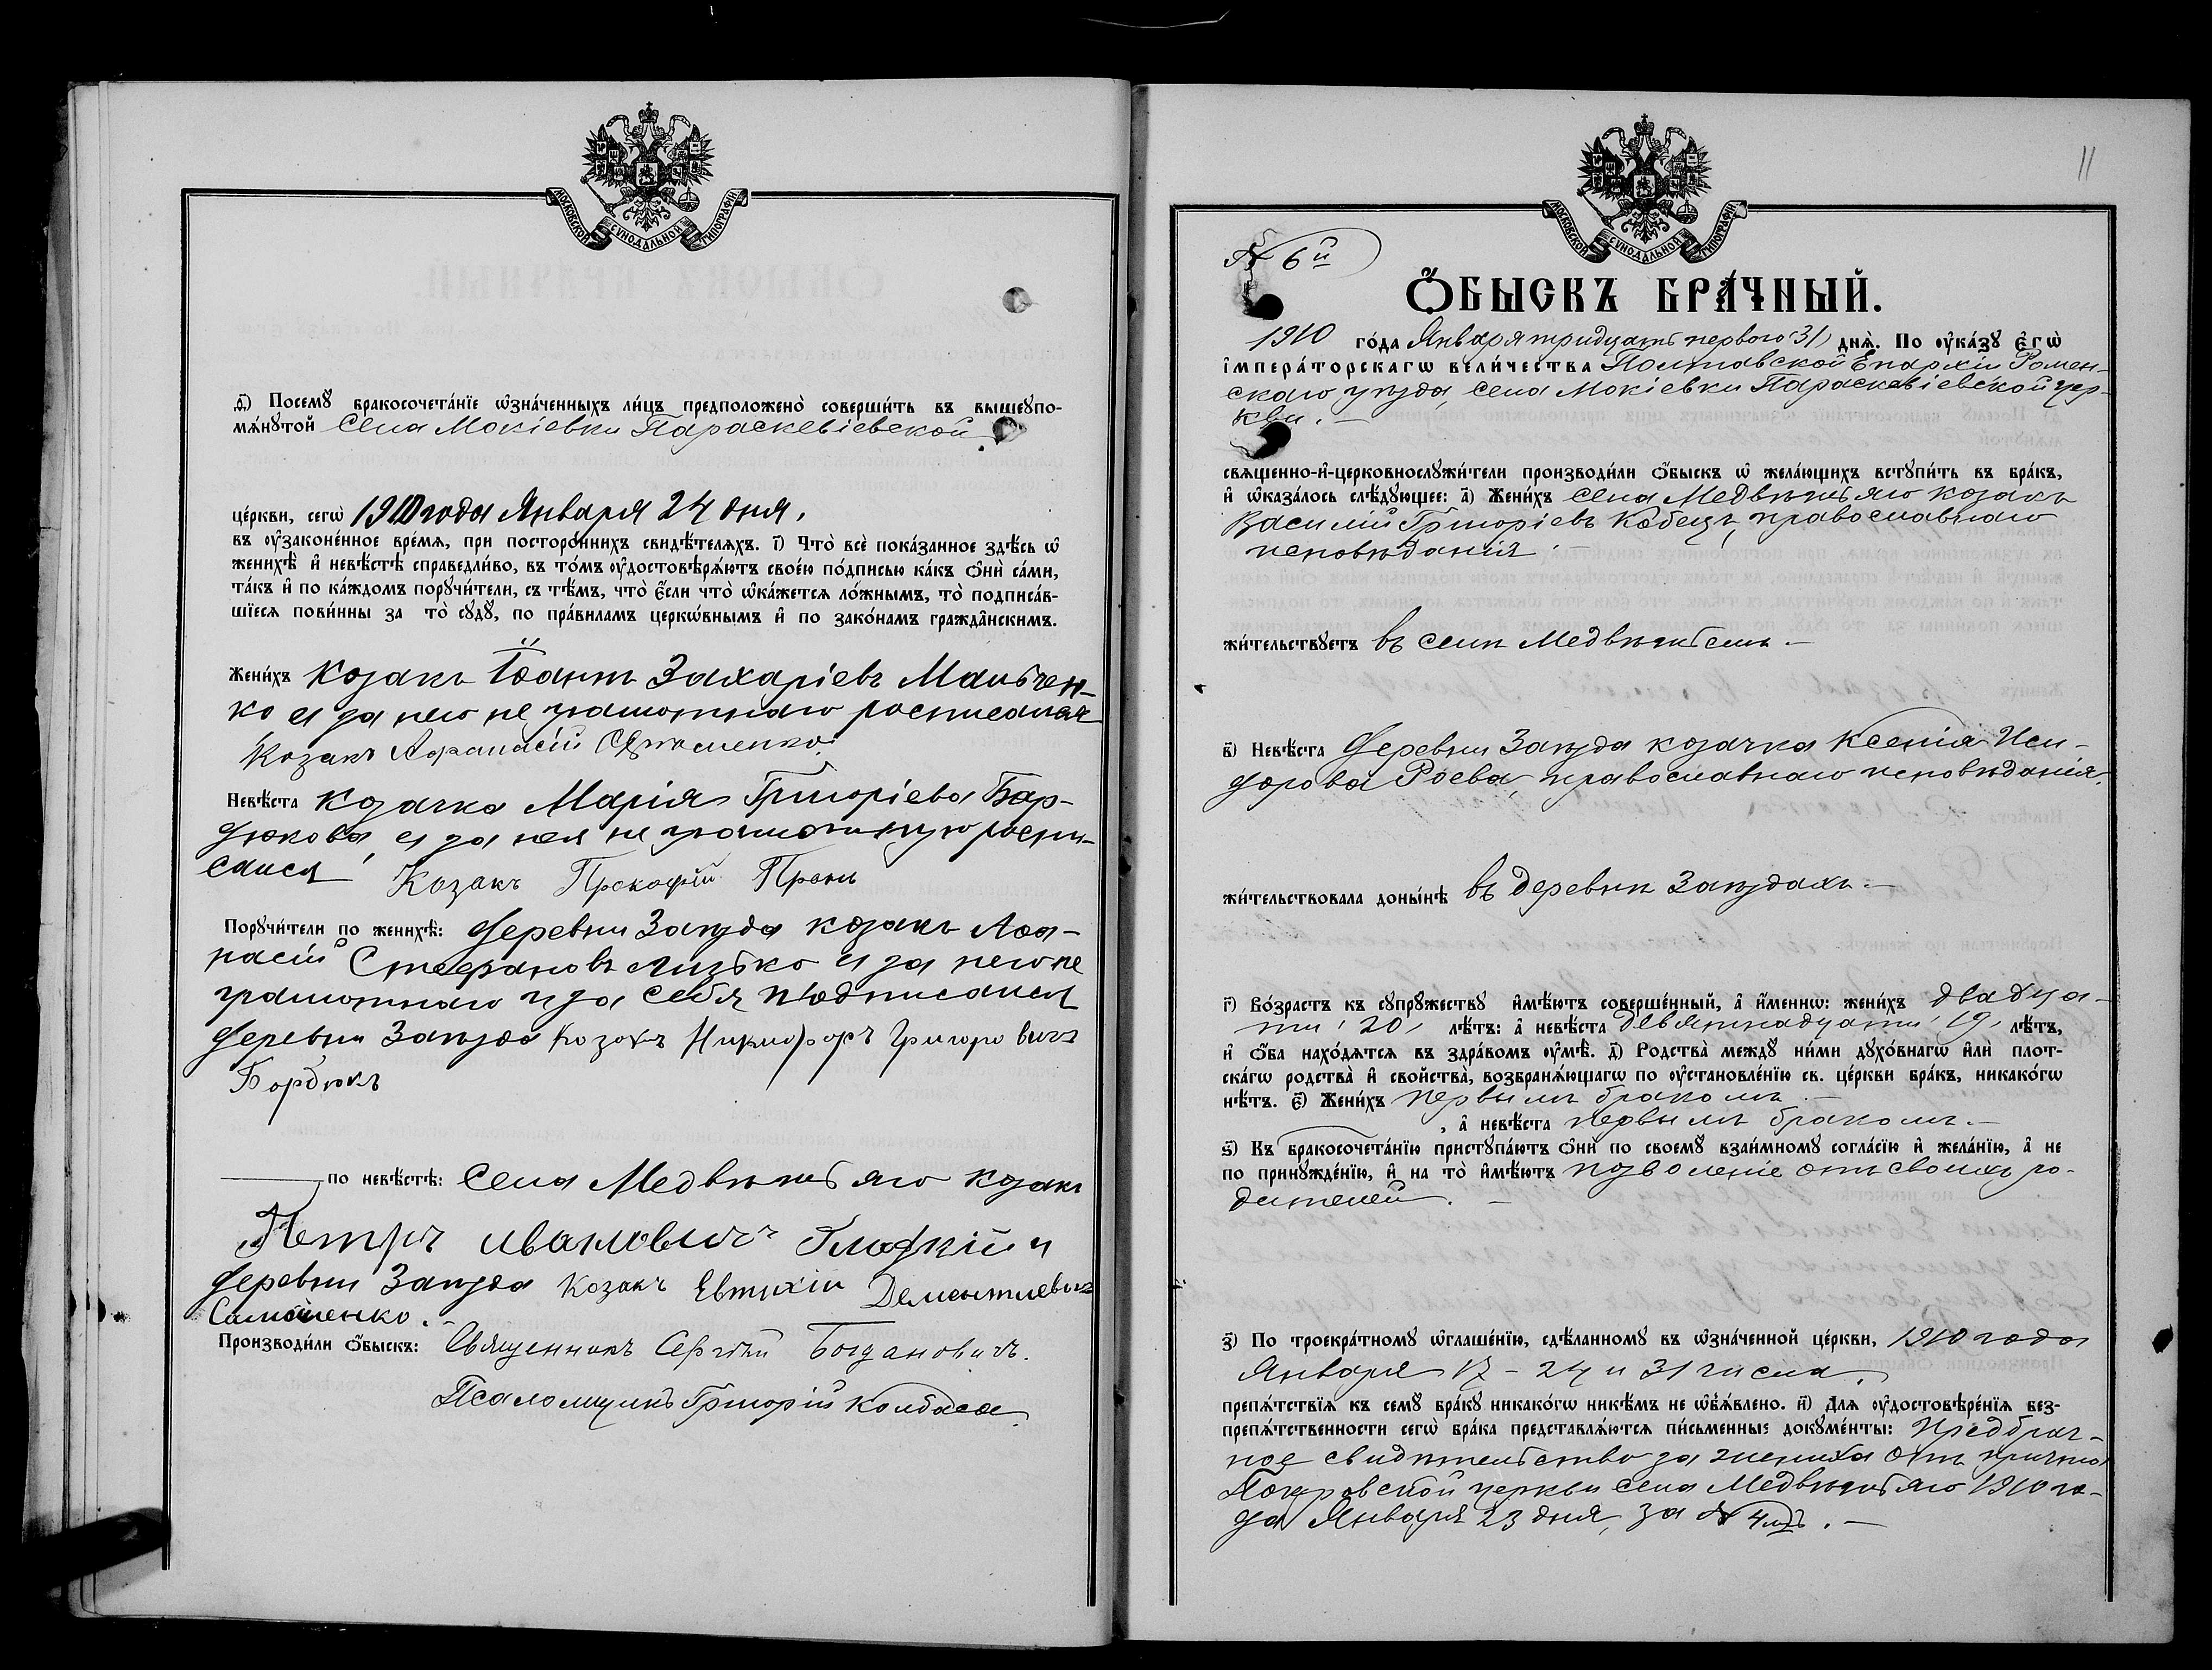 МОСКОВСКОЙ СѴНОДАЛЬНОЙ ТИПОГРАФІИ
д҃і) Посемꙋ̀ бракосочета́нїе ѡ҆зна́ченныхъ ли́цъ предположено̀ соверши́ть въ вышеꙋпо-
мѧ́нꙋтой села Мокіевки Параскевіевской
це́ркви, сегѡ̀ 1910 года Января 24 дня,
въ ᲂу҆законе́нное вре́мѧ, при посторо́ннихъ свидѣ́телѧхъ. і҃) Что̀ всѐ пока́занное здѣ́сь ѡ҆
женихѣ̀ и҆ невѣ́стѣ справедли́во, въ то́мъ ᲂу҆достовѣрѧ́ютъ свое́ю по́дписью ка́къ ѻ҆нѝ са́ми,
та́къ и҆ по ка́ждомъ порꙋчи́тели, съ тѣ́мъ, что̀ є҆́сли что̀ ѡ҆ка́жетсѧ ло́жнымъ, то̀ подписа́в-
шїесѧ пови́нны за то̀ сꙋдꙋ̀, по пра́виламъ церко́внымъ и҆ по зако́намъ гражда́нскимъ.
Жени́хъ козакъ Іоаннъ Захаріевъ Мальчен-
ко а за него не грамотнаго росписался
Козакъ Афанасій
Невѣ́ста козачка Марія Григоріева Бар-
дюкова, а за нея не грамотную роспи-
сался Козакъ Прокофій Пронь
Порꙋчи́тели по женихѣ̀: деревни Заѣзда козакъ Аѳа-
насій Стефановъ Лизько а за него не
грамотнаго и за себя подписался
деревни Заѣзда Козакъ Никифоръ Григоровичъ
Бордюкъ
по невѣ́стѣ: села Медвѣжьяго козакъ
Петръ Ивановичъ Гладкій и
деревни Заѣзда Козакъ Евтихіи Дементиевичъ
Самойленко.
Производи́ли ѻ҆́быскъ: Священникъ Сергѣй Богдановичъ.
Псаломщикъ Григорій Колбаса.
11
МОСКОВСКОЙ СѴНОДАЛЬНОЙ ТИПОГРАФІИ
№ 6й
Ѻ҆́БЫСКЪ БРА́ЧНЫЙ.
1910 го́да Января тридцать перваго 31 днѧ̀. По ᲂу҆ка́зꙋ є҆гѡ̀
і҆мпера́торскагѡ вели́чества Полтавской Епархіи Ромен-
скаго уѣзда, села Мокіевки Параскевіевской цер-
кви.
свѧщенно-и҆-церковнослꙋжи́тели производи́ли ѻ҆́быскъ ѡ҆ жела́ющихъ встꙋпи́ть въ бра́къ,
и҆ ѡ҆каза́лось слѣ́дꙋющее: а҃) Жени́хъ села Медвѣжьяго козакъ
Василій Григоріевъ Кобецъ, православнаго
исповѣданія.
жи́тельствꙋетъ въ селѣ Медвѣжьемъ.
в҃) Невѣ́ста деревни Заѣзда козачка Ксенія Иси-
дорова Роева, православнаго исповѣданія.
жи́тельствовала доны́нѣ въ деревнѣ Заѣздахъ.
г҃) Во́зрастъ къ сꙋпрꙋ́жествꙋ и҆мѣ́ютъ соверше́нный, а҆ и҆́менно: жени́хъ двадца-
ти 20, лѣ́тъ: а҆ невѣ́ста девятнадцати 19, лѣ́тъ,
и҆ ѻ҆́ба нахо́дѧтсѧ въ здра́вомъ ᲂу҆мѣ̀. д҃) Родства̀ междꙋ̀ ни́ми дꙋхо́внагѡ и҆лѝ плот-
ска́гѡ родства̀ и҆ свойства̀, возбранѧ́ющагѡ по ᲂу҆становле́нїю св. це́ркви бра́къ, никако́гѡ
нѣ́тъ. є҃) Жени́хъ первымъ бракомъ
, а҆ невѣ́ста первымъ бракомъ.
ѕ҃) Къ бракосочета́нїю пристꙋпа́ютъ ѻ҆нѝ по своемꙋ̀ взаи́мномꙋ согла́сїю и҆ жела́нїю, а҆ не
по принꙋжде́нїю, и҆ на то̀ и҆мѣ́ютъ позволеніе отъ своихъ ро-
дителей.
з҃) По троекра́тномꙋ ѡ҆глаше́нїю, сдѣ́ланномꙋ въ ѡ҆зна́ченной це́ркви, 1910 года
Января 17 - 24 и 31 числа,
препѧ́тствїѧ къ семꙋ̀ бра́кꙋ никако́гѡ никѣ́мъ не ѡ҆б̾ѧ́влено. и҃) Длѧ ᲂу҆достовѣре́нїѧ без-
препѧ́тственности сегѡ̀ бра́ка представлѧ́ютсѧ пи́сьменные докꙋме́нты: Предбрач-
ное свидѣтельство за жениха отъ причта
Покровской церкви села Медвѣжьяго 1910 го-
да Января 23 дня, за № 4мъ.